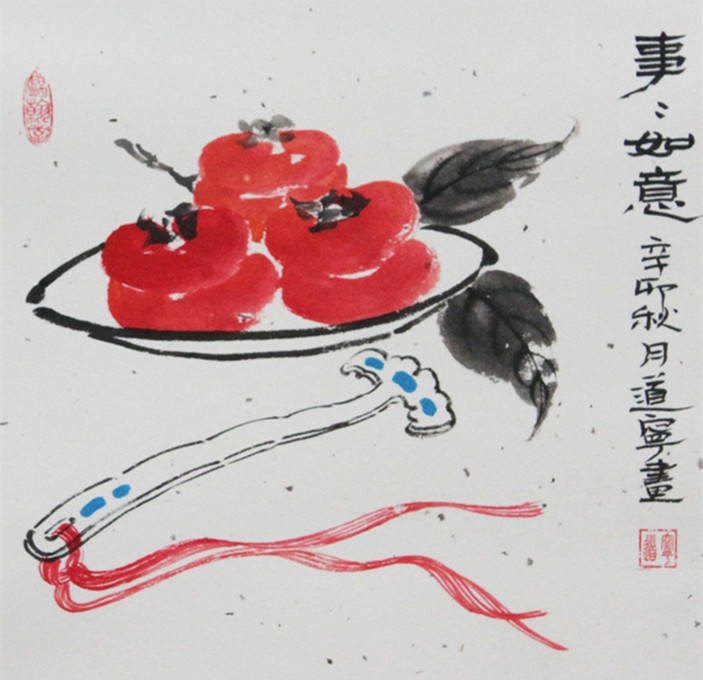 事〻如意
辛卯秋月道寧畫